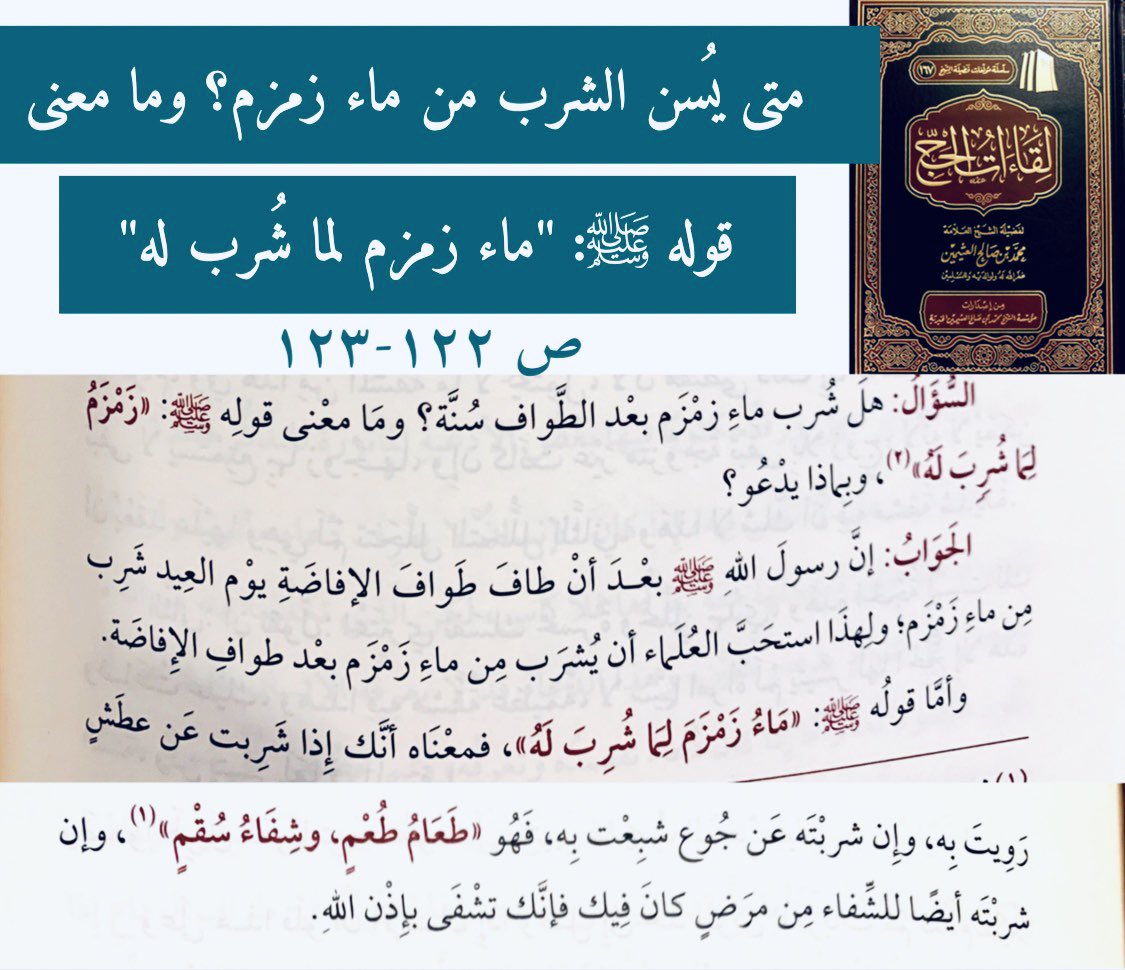 متى يُسن الشرب من ماء زمزم؟ وما معنى
قوله ﷺ: "ماء زمزم لما شُرب له"
ص ١٢٢-١٢٣
سلسلة مؤلفات فضيلة الشيخ (١٦٧)
لِقَاءَاتُ الحَجِّ
لفضيلة الشيخ العلامة
محمد بن صالح العثيمين
غفر الله له ولوالديه وللمسلمين
من إصدارات
مؤسسة الشيخ محمد بن صالح العثيمين الخيرية
السُّؤَالُ: هلْ شُرب ماءِ زمْزَم بعْد الطَّواف سُنَّة؟ ومَا معْنى قولِه ﷺ: «زَمْزَمُ
لِمَا شُرِبَ لَهُ»(٢)، وبِماذا يدْعُو؟
الجَوَابُ: إنَّ رسولَ اللهِ ﷺ بعْدَ أنْ طافَ طَوافَ الإفاضَةِ يوْم العِيد شَرِب
مِن ماءِ زَمْزَم؛ ولِهذَا استحَبَّ العُلَماء أن يُشرَب مِن ماءِ زَمْزَم بعْد طوافِ الإِفاضَة.
وأمَّا قولُه ﷺ: «مَاءُ زَمْزَمَ لِمَا شُرِبَ لَهُ»، فمعْنَاه أنَّك إِذا شَرِبت عَن عطَشٍ
(١)
رَوِيتَ بِه، وإِن شربْتَه عَن جُوع شبِعْت بِه، فَهُو «طَعَامُ طُعْمٍ، وشِفَاءُ سُقْمٍ»(١)، وإن
شربْتَه أيضًا للشِّفاء مِن مرَضٍ كانَ فِيك فإنَّك تشْفَى بإِذْن اللهِ.